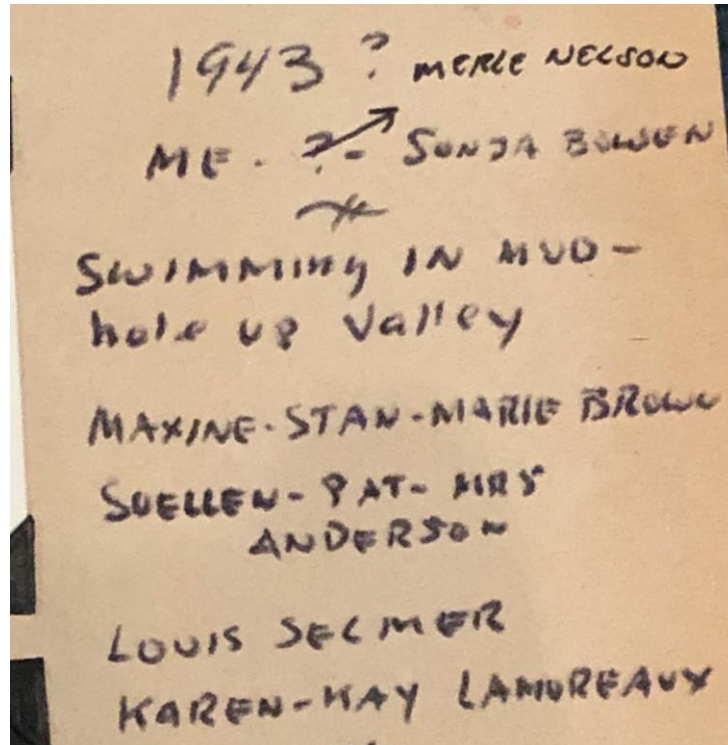 1943 ? MERLE NELSON
ME - ? - SONJA BOWEN
SWIMMING IN MUD-
hole up Valley
MAXINE-STAN-MARIE BROWN
SUELLEN-PAT-MRS
ANDERSON
LOUIS SELMER
KAREN-KAY LAMOREAUX